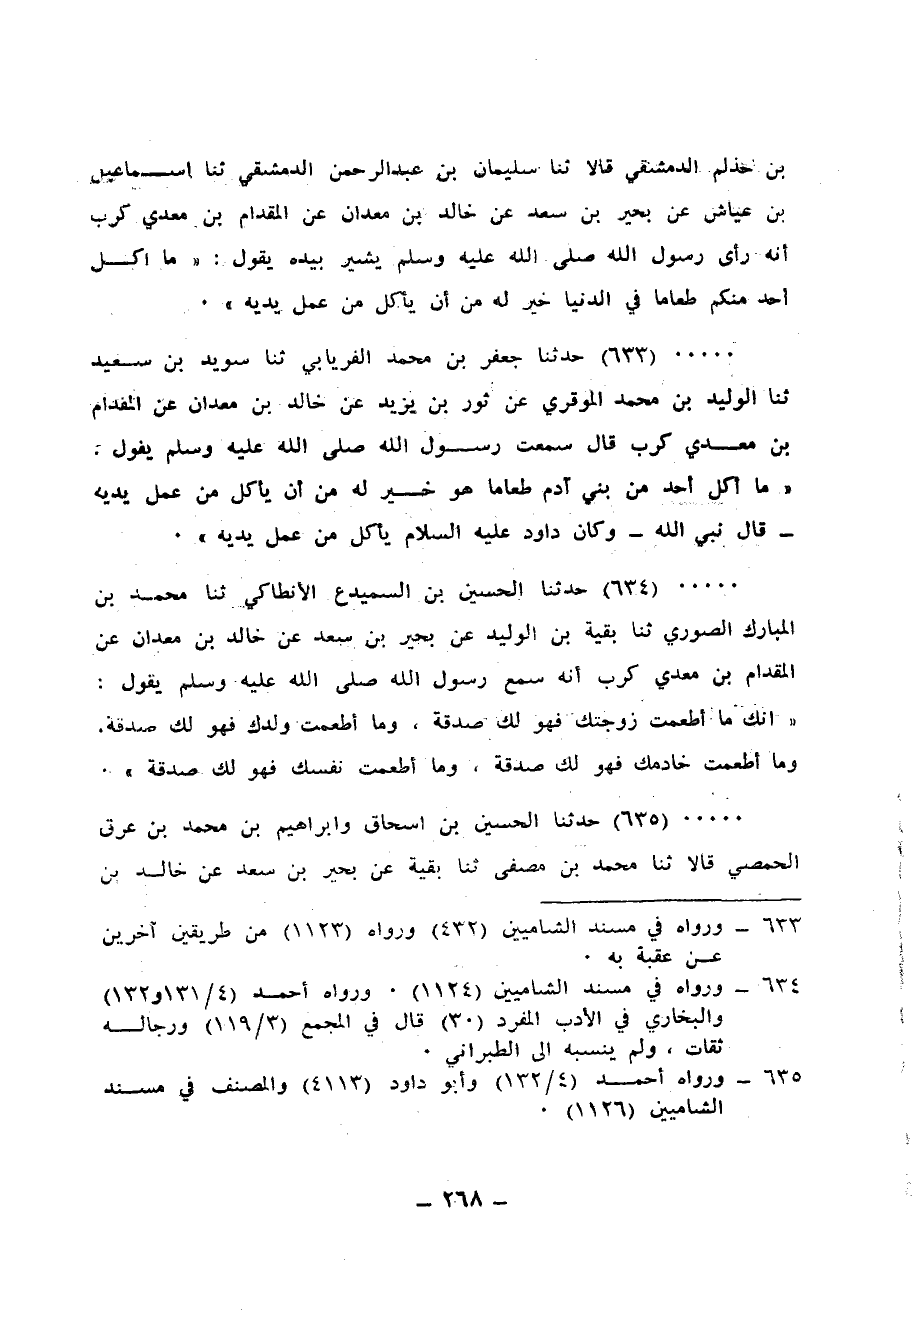 بن حذلم الدمشقي قالا ثنا سليمان بن عبدالرحمن الدمشقي ثنا اسـماعيل
بن عياش عن بحير بن سعد عن خالد بن معدان عن المقدام بن معدي كرب
أنه رأى رسول الله صلى الله عليه وسلم يشير بيده يقول : « ما اكـل
أحد منكم طعاما في الدنيا خير له من أن يأكل من عمل يديه » ٠
٠٠٠٠٠ (٦٣٣) حدثنا جعفر بن محمد الفريابي ثنا سويد بن سـعيد
ثنا الوليد بن محمد الموقري عن ثور بن يزيد عن خالد بن معدان عن المقدام
بن معـدي كرب قال سمعت رسـول الله صلى الله عليه وسلم يقول :
« ما أكل أحد من بني آدم طعاما هو خـير له من أن يأكل من عمل يديه
ـ قال نبي الله ـ وكان داود عليه السلام يأكل من عمل يديه » ٠
٠٠٠٠٠ (٦٣٤) حدثنا الحسين بن السميدع الأنطاكي ثنا محمـد بن
المبارك الصوري ثنا بقية بن الوليد عن بحير بن سعد عن خالد بن معدان عن
المقدام بن معدي كرب أنه سمع رسول الله صلى الله عليه وسلم يقول :
« انك ما أطعمت زوجتك فهو لك صدقة ، وما أطعمت ولدك فهو لك صدقة،
وما أطعمت خادمك فهو لك صدقة ، وما أطعمت نفسك فهو لك صدقة » ٠
٠٠٠٠٠ (٦٣٥) حدثنا الحسين بن اسحاق وابراهيم بن محمد بن عرق
الحمصي قالا ثنا محمد بن مصفى ثنا بقية عن بحير بن سعد عن خالـد بن
٦٣٣ ـ ورواه في مسند الشاميين (٤٣٢) ورواه (١١٢٣) من طريقين آخرين
عـن عقبة به ٠
٦٣٤ ـ ورواه في مسند الشاميين (١١٢٤) ٠ ورواه أحمـد (٤/١٣١و١٣٢)
والبخاري في الأدب المفرد (٣٠) قال في المجمع (٣/١١٩) ورجالـه
ثقات ، ولم ينسبه الى الطبراني ٠
٦٣٥ ـ ورواه أحمـد (٤/١٣٢) وأبو داود (٤١١٣) والمصنف في مسـند
الشاميين (١١٢٦) ٠
ـ ٢٦٨ ـ